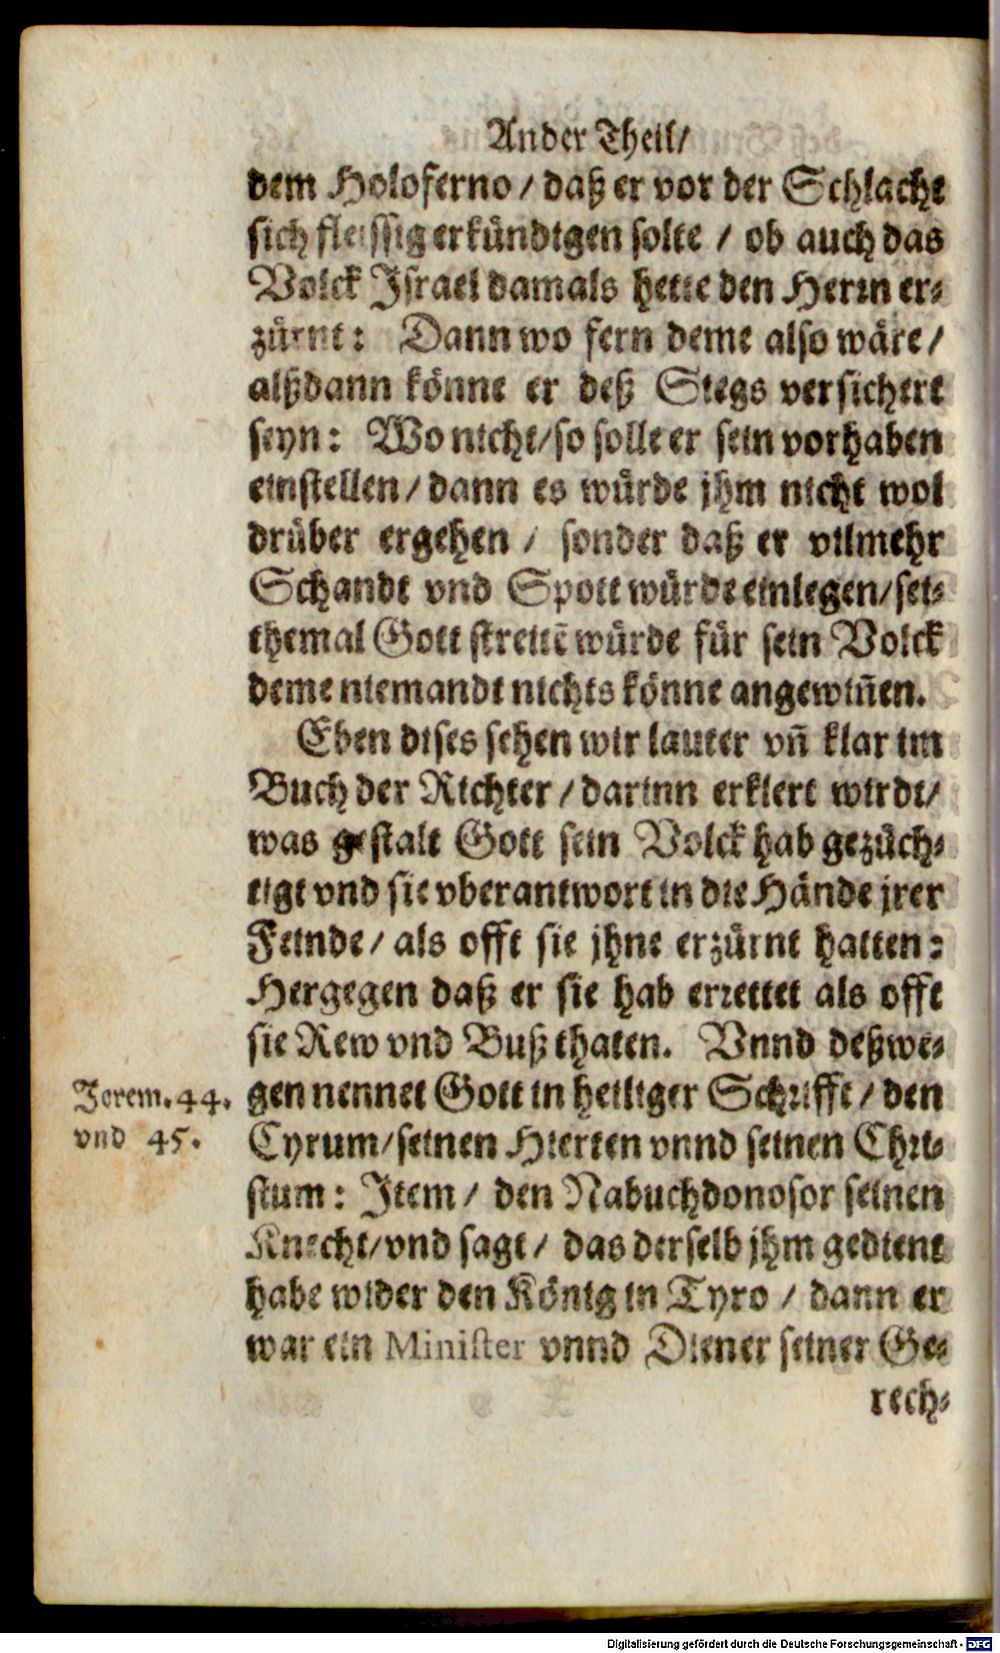 Ander Theil/
dem Holoferno / daß er vor der Schlacht
sich fleissig erkündigen solte / ob auch das
Volck Israel damals hette den Herrn er-
zürnt: Dann wo fern deme also wäre /
alßdann könne er deß Siegs versichert
seyn: Wo nicht / so solle er sein vorhaben
einstellen / dann es würde jhm nicht wol
drüber ergehen / sonder daß er vilmehr
Schandt vnd Spott würde einlegen / sei-
themal Gott streitē würde für sein Volck
deme niemandt nichts könne angewiñen.
Eben dises sehen wir lauter vñ klar im
Buch der Richter / darinn erklert wirdt /
was gestalt Gott sein Volck hab gezüch-
tigt vnd sie vberantwort in die Hände jrer
Feinde / als offt sie jhne erzürnt hatten:
Hergegen daß er sie hab errettet als offt
sie Rew vnd Buß thaten. Vnnd deßwe-
Jerem. 44.
vnd 45.
gen nennet Gott in heiliger Schrifft / den
Cyrum / seinen Hierten vnnd seinen Chri-
stum: Item / den Nabuchdonosor seinen
Knecht / vnd sagt / das derselb jhm gedient
habe wider den König in Tyro / dann er
war ein Minister vnnd Diener seiner Ge-
rech-
Digitalisierung gefördert durch die Deutsche Forschungsgemeinschaft - DFG